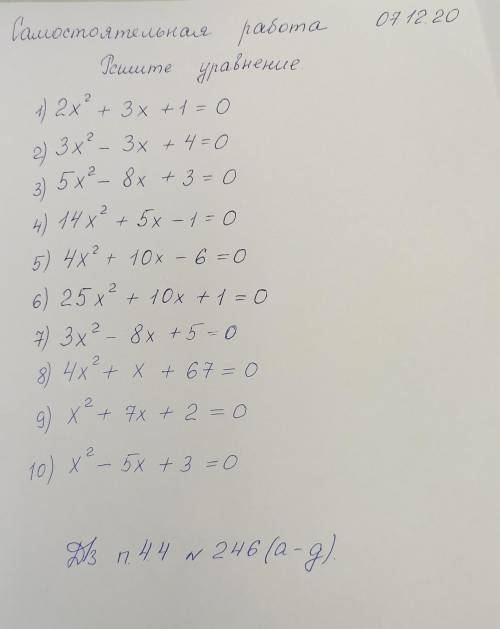 Самостоятельная работа 07.12.20
Решите уравнение.
1) 2x² + 3x + 1 = 0
2) 3x² - 3x + 4 = 0
3) 5x² - 8x + 3 = 0
4) 14x² + 5x - 1 = 0
5) 4x² + 10x - 6 = 0
6) 25x² + 10x + 1 = 0
7) 3x² - 8x + 5 = 0
8) 4x² + x + 67 = 0
9) x² + 7x + 2 = 0
10) x² - 5x + 3 = 0
Д/з п.44 № 246 (а-д).